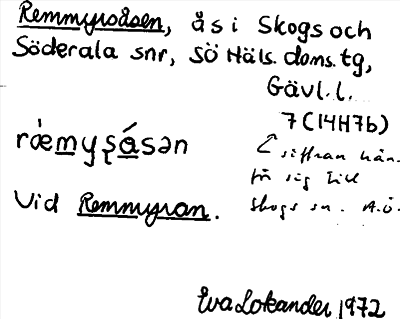 Remmyråsen, ås i Skogs och
Söderala snr, SÖ Häls. doms. tg,
Gävl. l.
7 (14H7b)
siffran hän-
för sig till
Skogs sn. A.Ö.
rǿemyṣåsən
Vid Remmyran.
Eva Lokander 1972